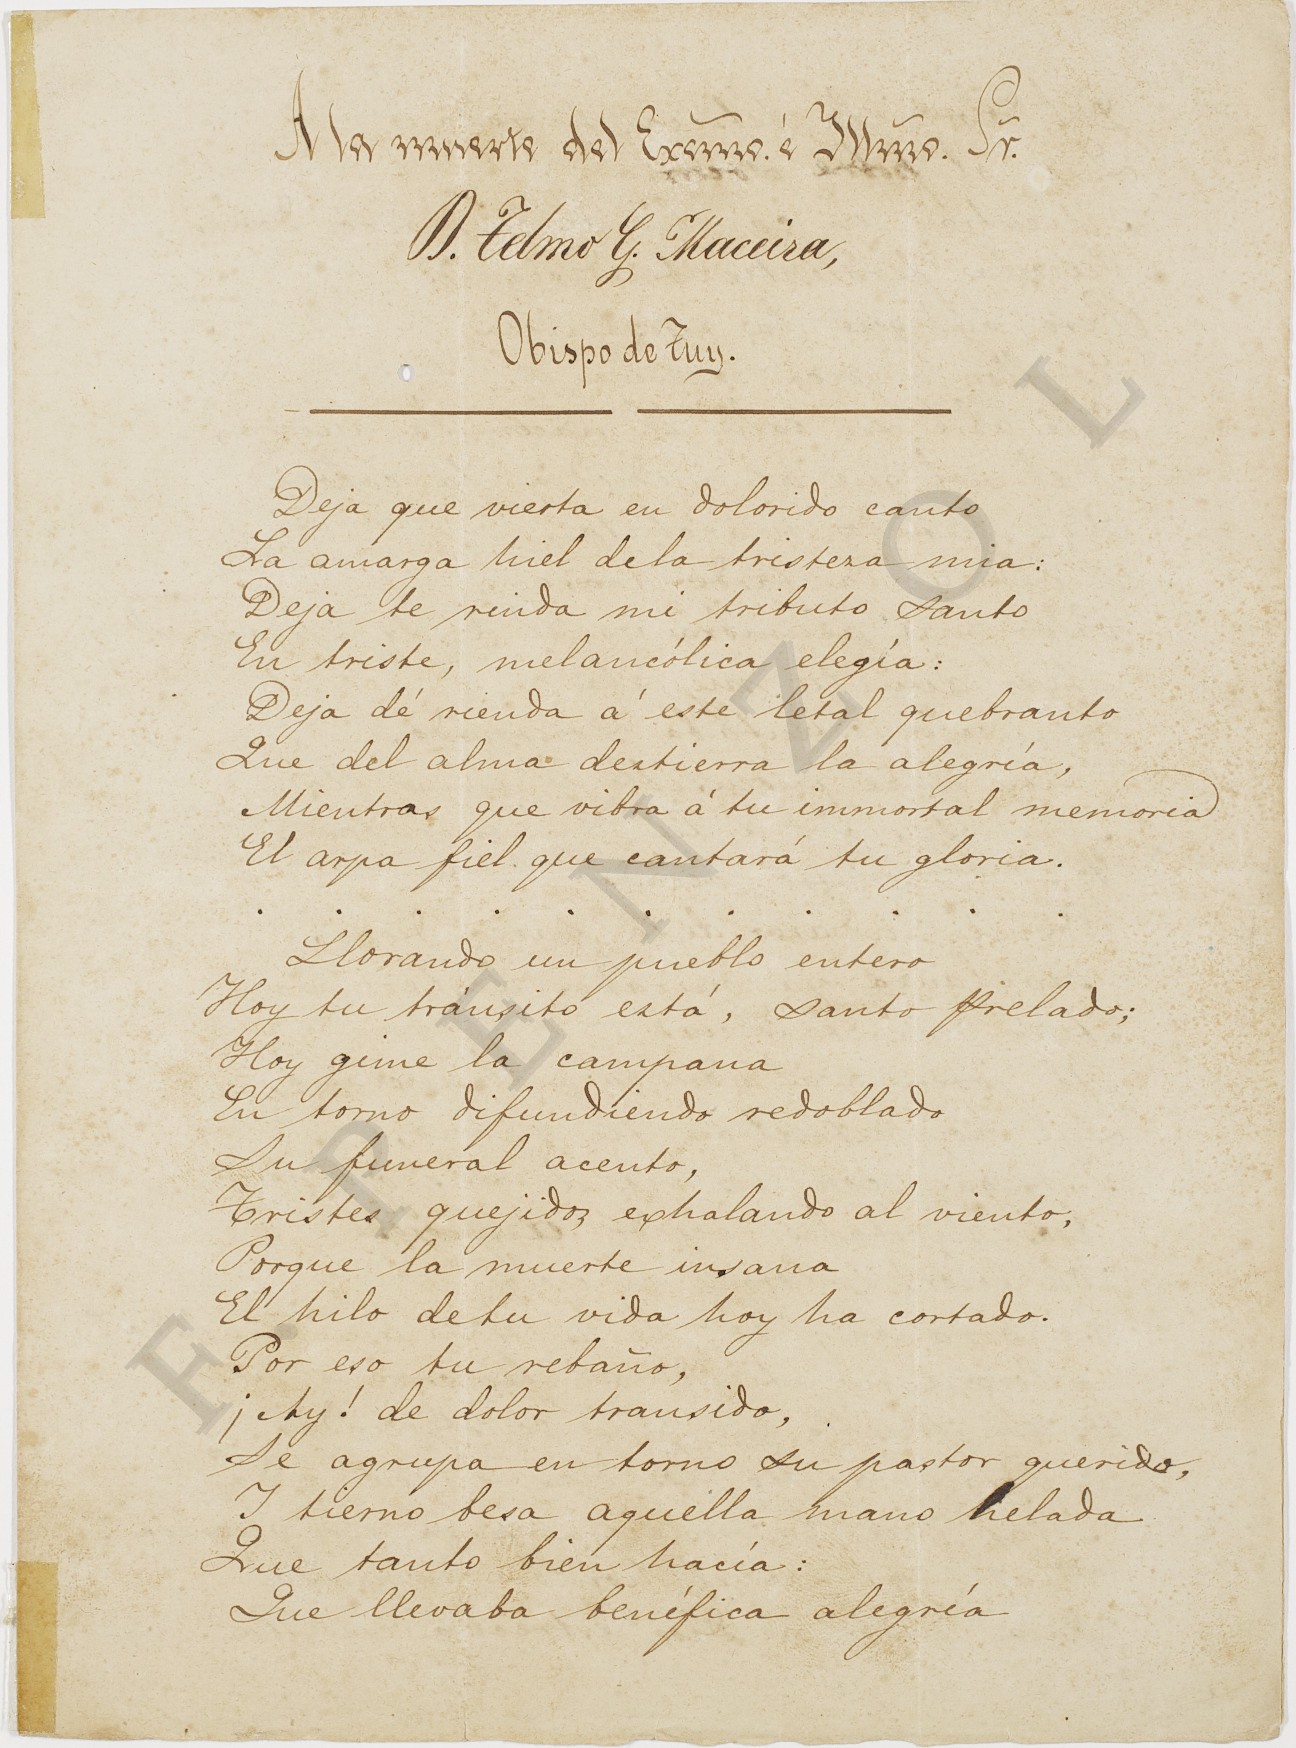 A la muerte del Excmo. é Illmo. Sr.
D. Telmo G. Maceira,
Obispo de Tuy.
Deja que vierta en dolorido canto
La amarga hiel de la tristeza mia:
Deja te rinda mi tributo santo
En triste, melancólica elegía:
Deja dé rienda á este letal quebranto
Que del alma destierra la alegría,
Mientras que vibra á tu immortal memoria
El arpa fiel que cantará tu gloria.
. . . . . . . . . . .
Llorando un pueblo entero
Hoy tu tránsito está, santo Prelado;
Hoy gime la campana
En torno difundiendo redoblado
Su funeral acento,
Tristes quejidos exhalando al viento,
Porque la muerte insana
El hilo de tu vida hoy ha cortado.
Por eso tu rebaño,
¡Ay! de dolor transido,
Se agrupa en torno su pastor querido,
Y tierno besa aquella mano helada
Que tanto bien hacía:
Que llevaba benéfica alegría
F. PENZOL